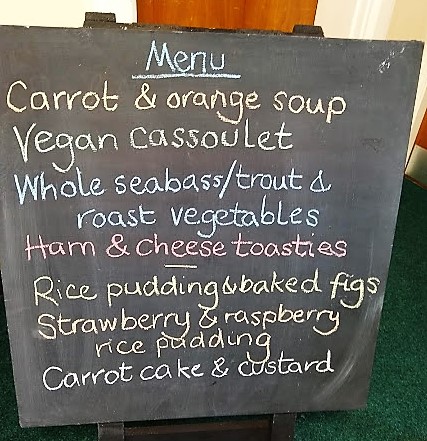 Menu
Carrot & orange soup
Vegan cassoulet
Whole seabass/trout &
roast vegetables
Ham & cheese toasties
Rice pudding & baked figs
Strawberry & raspberry
rice pudding
Carrot cake & custard